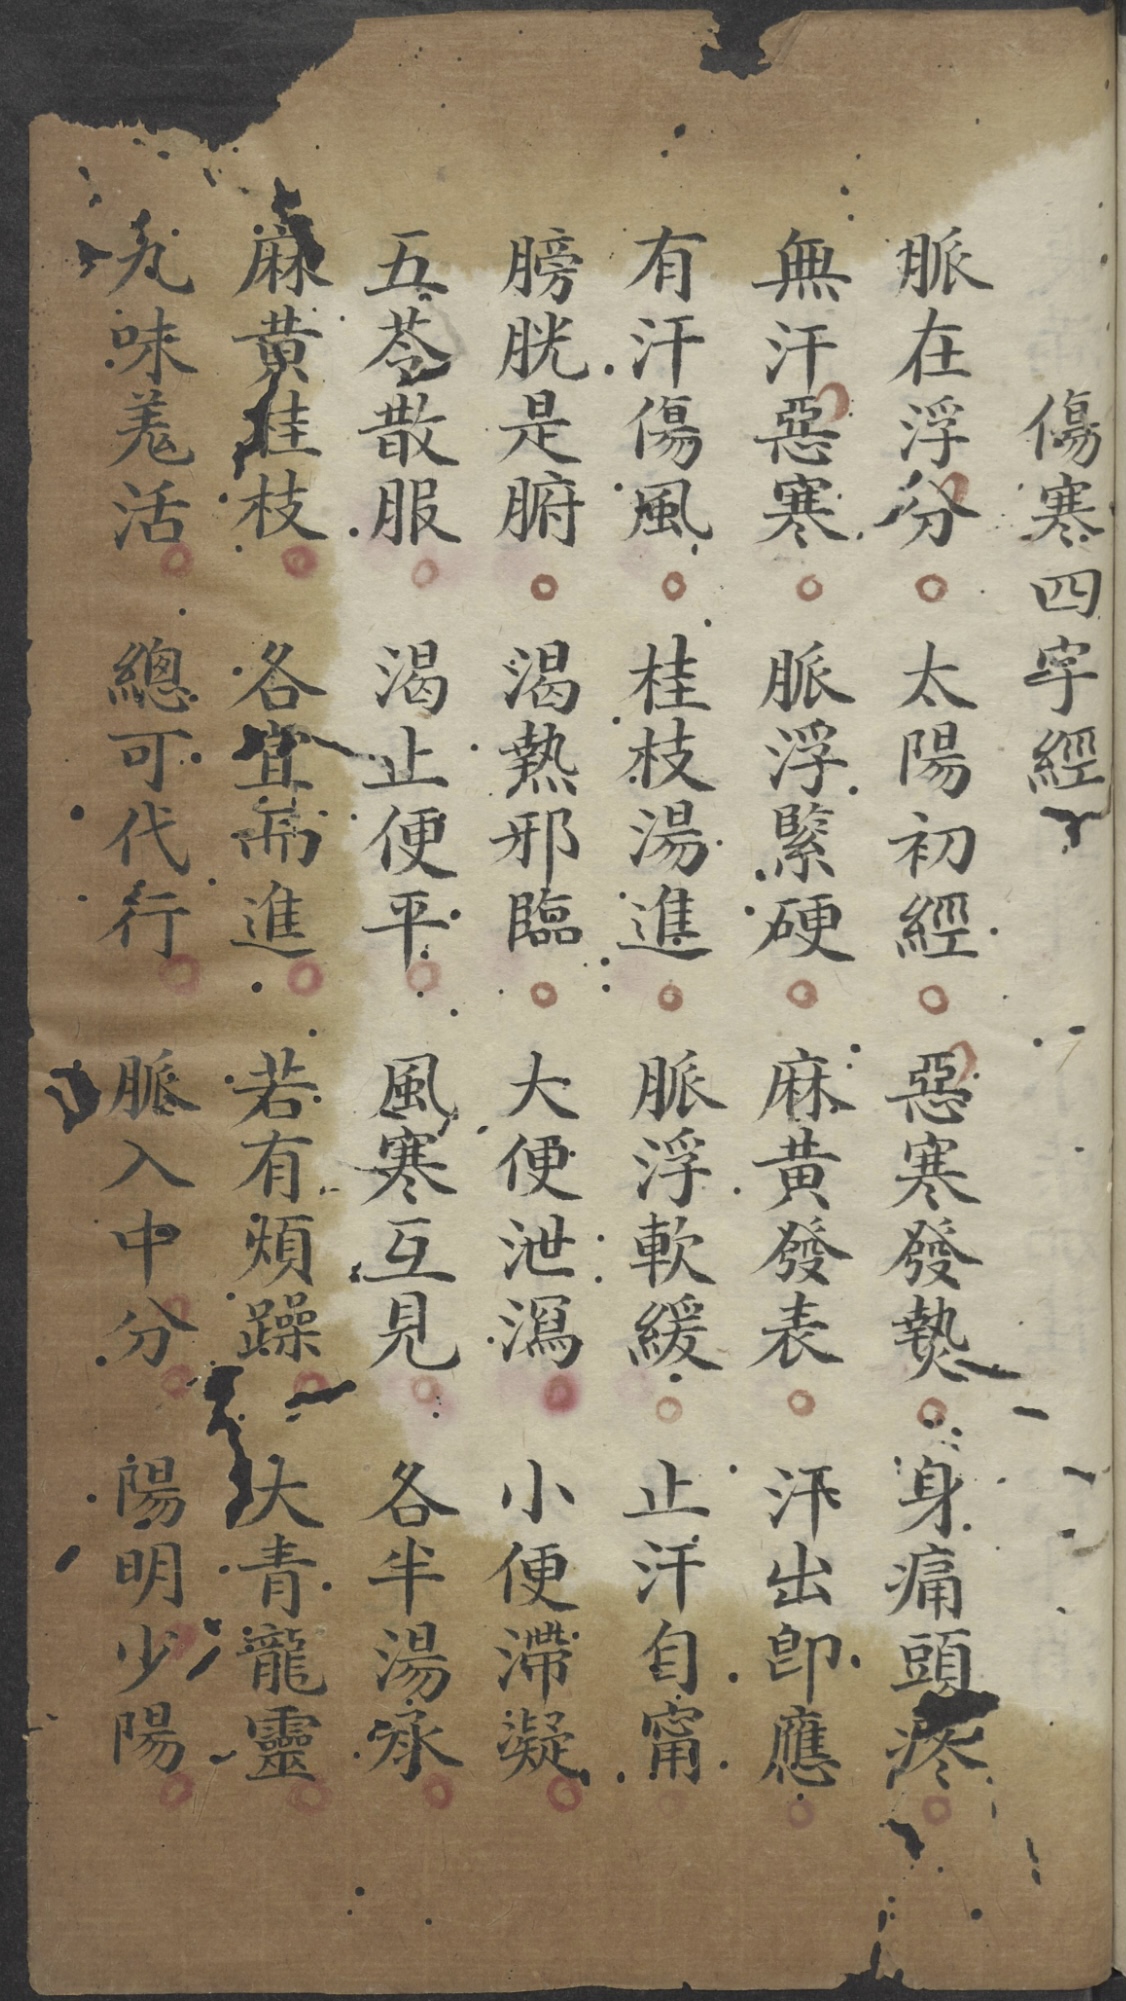 傷寒四字經
脈在浮分 太陽初經 惡寒發熱 身痛頭疼
無汗惡寒 脈浮緊硬 麻黃發表 汗出卽應
有汗傷風 桂枝湯進 脈浮軟緩 止汗自甯
膀胱是腑 渴熱邪臨 大便泄瀉 小便滯凝
五苓散服 渴止便平 風寒互見 各半湯承
麻黃桂枝 各宜進 若有煩躁 大青龍靈
九味羗活 總可代行 脈入中分 陽明少陽